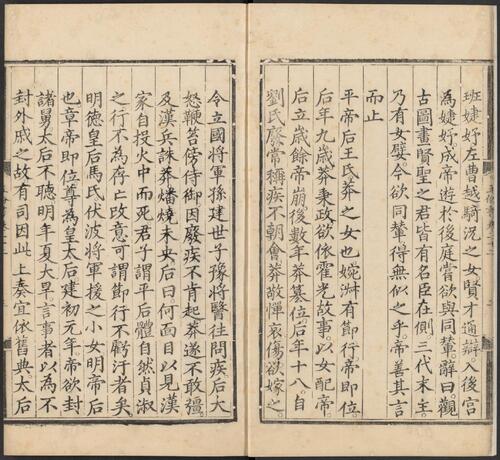 班婕妤左曹越騎況之女賢才通辯入後宮
為婕妤成帝遊於後庭嘗欲與同輦辭曰觀
古圖畫賢聖之君皆有名臣在側三代末主
乃有女嬖今欲同輦得無似之乎帝善其言
而止
平帝后王氏莽之女也婉淑有節行帝即位
后年九歲莽秉政欲依霍光故事以女配帝
后立歲餘帝崩後數年莽篡位后年十八自
劉氏廢常稱疾不朝會莽敬憚哀傷欲嫁之
令立國將軍孫建世子豫將醫往問疾后大
怒鞭笞傍侍御因廢疾不肯起莽遂不敢彊
及漢兵誅莽燔燒未央后曰何面目以見漢
家自投火中而死君子謂平后體自然貞淑
之行不為存亡改意可謂節行不虧汙者矣
明德皇后馬氏伏波將軍援之小女明帝后
也章帝即位尊為皇太后建初元年帝欲封
諸舅太后不聽明年夏大旱言事者以為不
封外戚之故有司因此上奏宜依舊典太后